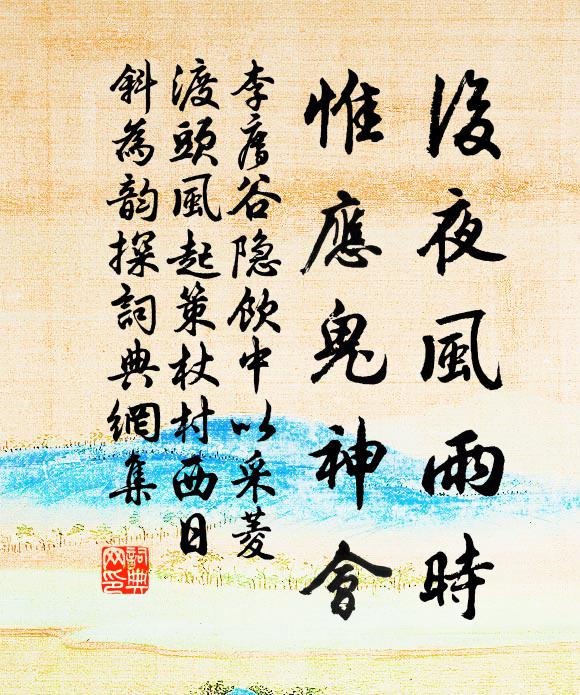 後夜風雨時
惟應鬼神會
李唐谷隐飲中以采菱
渡頭風起策杖村西日
斜為韵探詞典網集
詞典网印